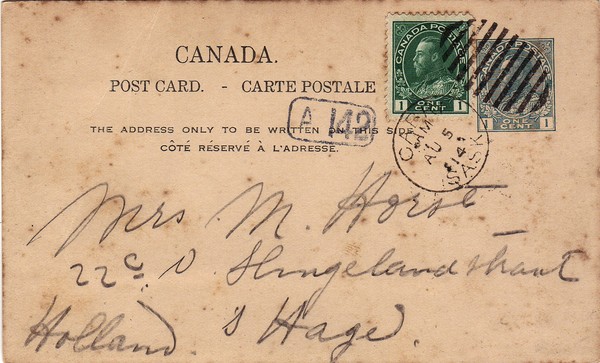 CANADA.
POST CARD. - CARTE POSTALE
THE ADDRESS ONLY TO BE WRITTEN ON THIS SIDE
CÔTÉ RÉSERVÉ À L'ADRESSE.
CANADA POSTAGE
1 ONE CENT 1
CANADA POSTAGE
1 ONE CENT 1
A 142
AM
AU 5
14
SASK
Mrs M. Horst
22c V. Slingelandstraat
Holland. s Hage.